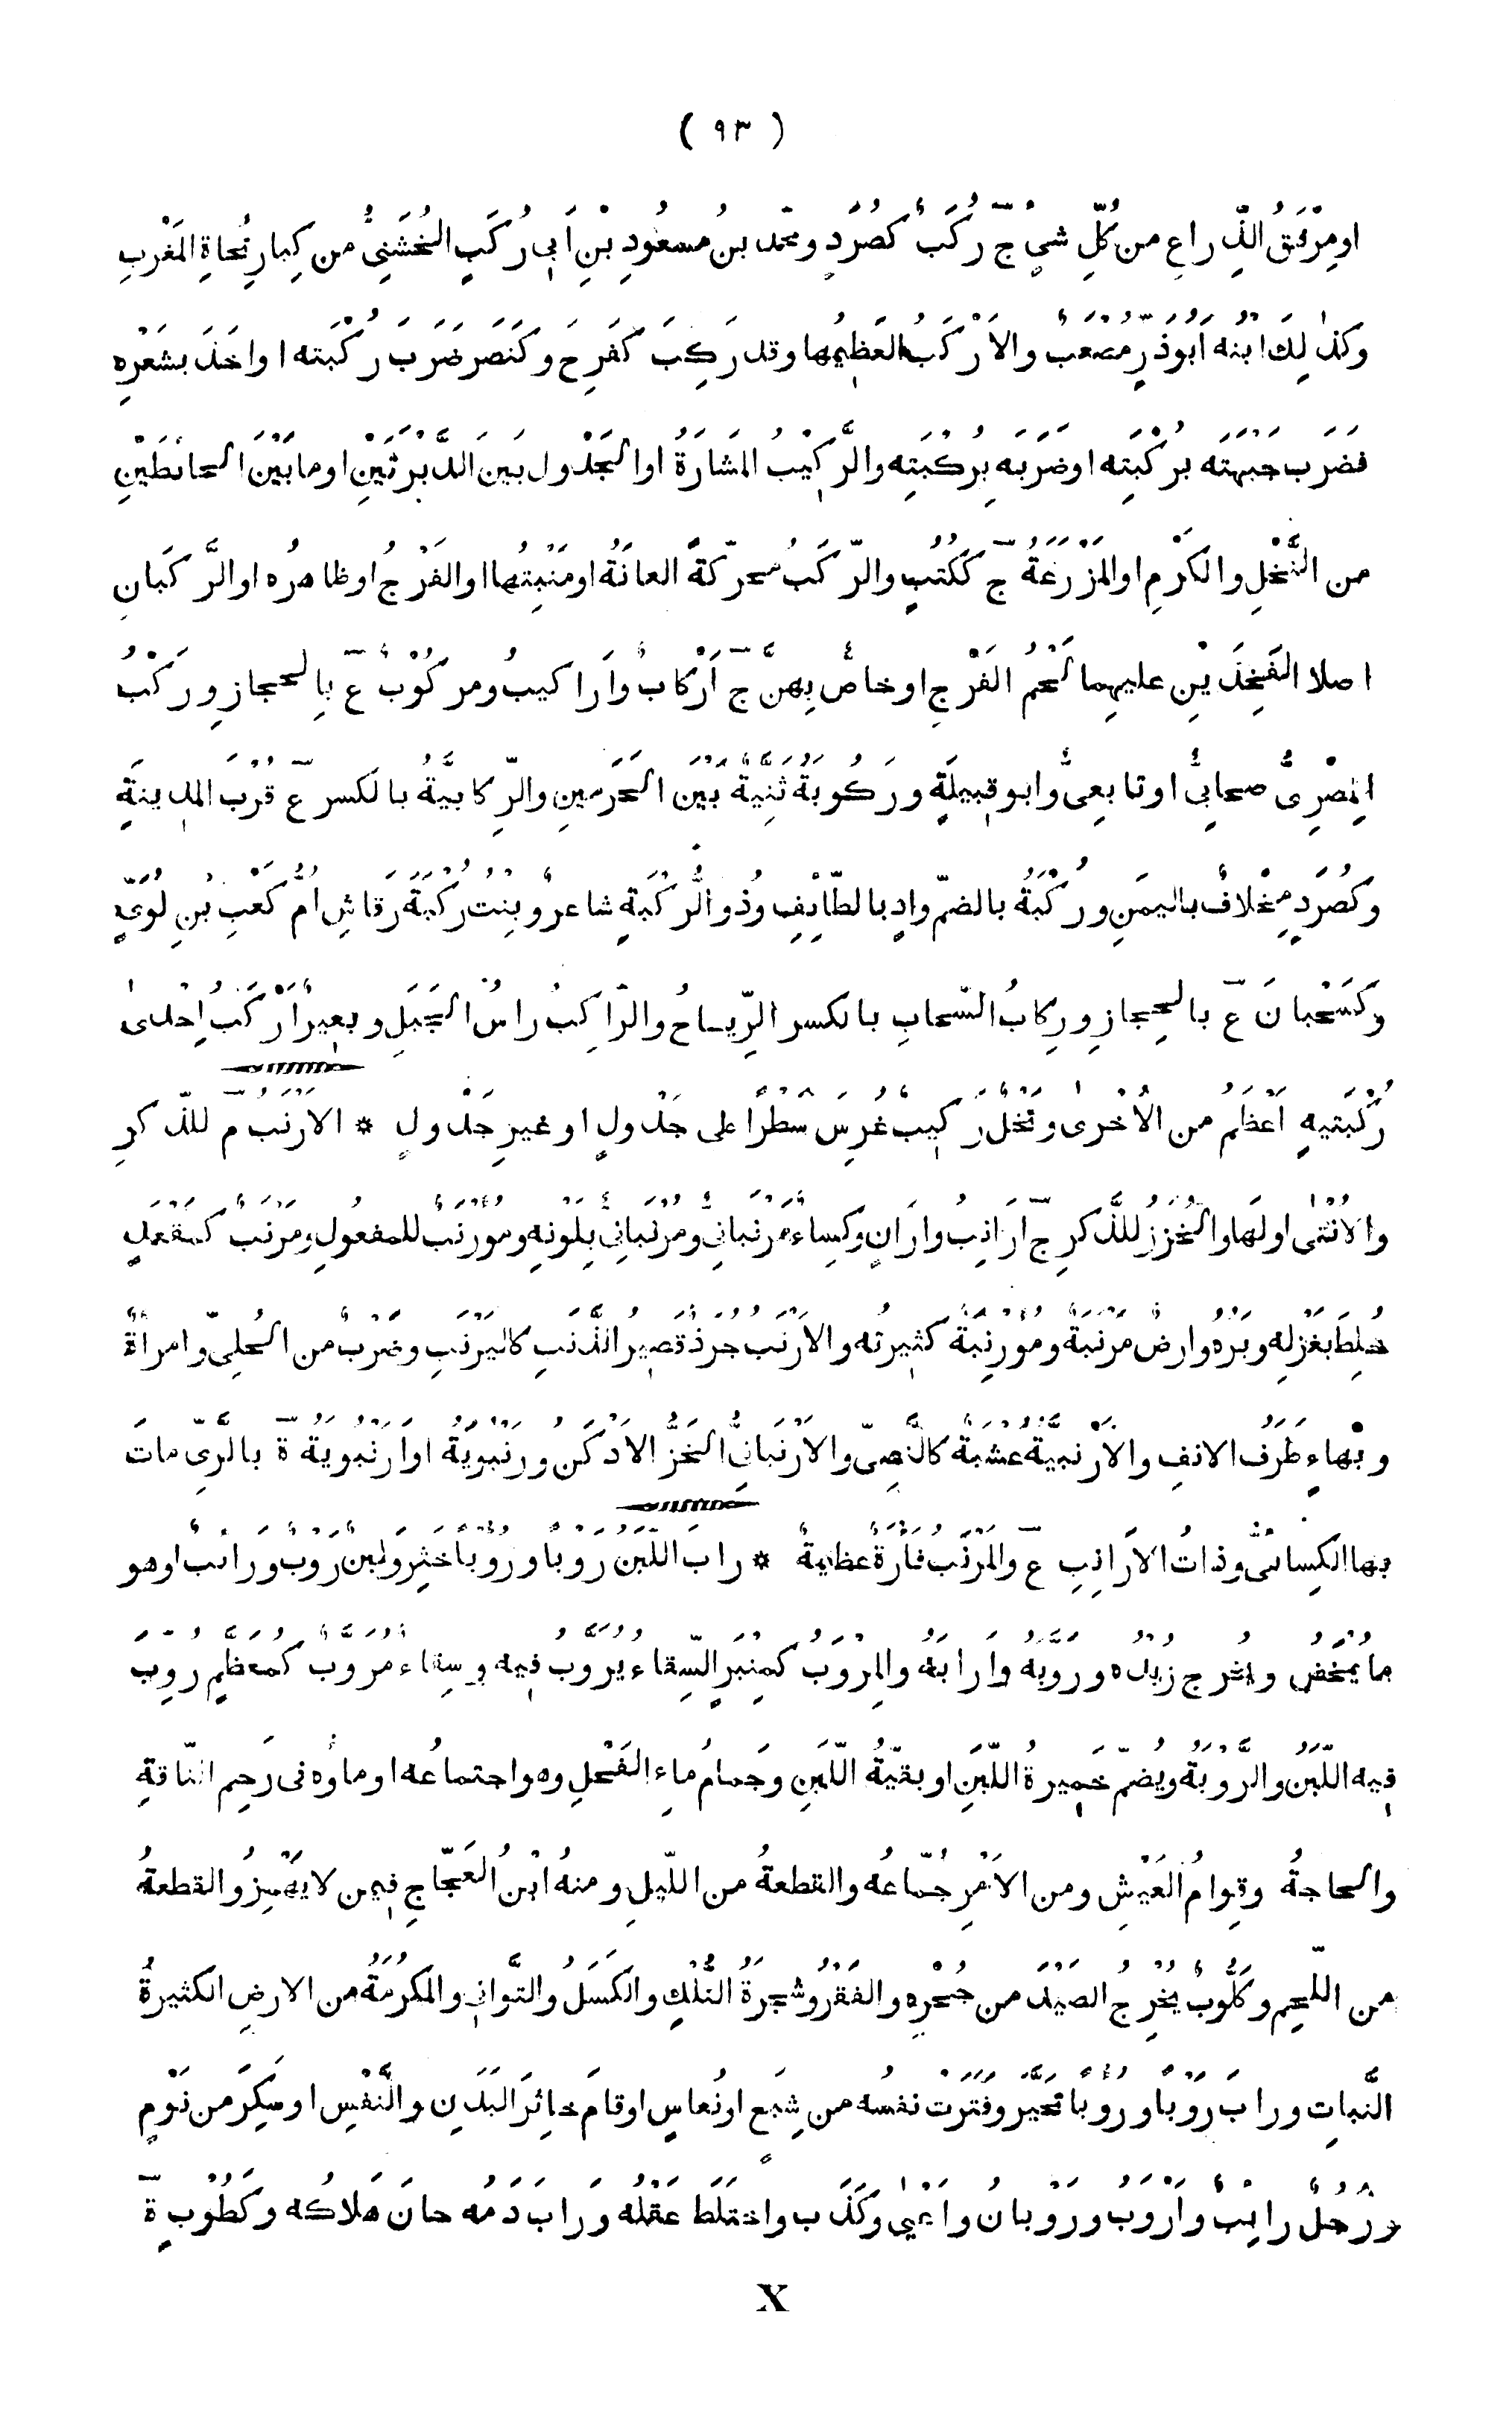 ( ٩٣ )
او مِرْفَقُ الذِّراعِ من كُلِّ شيْءٍ جّ رُكَبٌ كصُرَدٍ ومحمّد بنُ مسعُودِ بْنِ اَبي رُكَبٍ الخُشَنِيُّ من كِبارِ نُحاةِ المَغْرِبِ
وكذٰلِكَ ابنُه اَبُوذَرٍّ مُصْعَبٌ والاَرْكَبُ العَظِيمُها وقد رَكِبَ كفَرِحَ وكنَصَرَ ضَرَبَ رُكْبَته او اخَذَ بشَعْرِه
فضَرَبَ جَبْهَتَه برُكْبَتِه او ضَرَبَه بِرُكبَتِه والرَّكِيْبُ المَشَارَةُ او الجَدْولُ بَينَ الدَّبْرَتَيْنِ او مابَيْنَ الحائطَيْنِ
من النَّخْلِ والكَرْمِ او المَزْرَعَةُ جّ ككُتُبٍ والرَّكَبُ محرّكةً العانَةُ او مَنْبِتُها او الفَرْجُ او ظاهرُه او الرَّكَبانِ
اصلا الفَخِذَيْنِ عليهما لَحْمُ الفَرْجِ او خاصٌّ بِهنَّ جّ اَرْكابٌ واَراكيبُ ومركُوْبٌ عّ بِالحجازِ ورَكْبٌ
المِصْرِىُّ صحابيٌّ او تابعِىٌّ وابو قبيلَةٍ ورَكُوبَةُ ثَنِيَّةٌ بَيْنَ الحَرَمينِ والرِّكابيَّةُ بالكَسرِ عّ قُرْبَ المدينَةِ
وكصُرَدٍ مِخْلافٌ باليمَنِ ورُكْبَةُ بالضمّ وادٍ بالطّايِفِ وذُو الرُّكْبَةِ شاعرٌ وبِنْتُ رُكْبَةَ رَقاشِ اُمُّ كَعْبِ بْنِ لُؤَيٍّ
وكَسَحْبانَ عّ بالحجازِ ورِكابُ السّحابِ بالكسر الرِّياحُ والرّاكِبُ راسُ الجَبَلِ وبعِيرٌ اَرْكَبُ اِحْدىٰ
رُكْبَتيهِ اَعْظَمُ من الاُخْرىٰ ونَخْلٌ رَكيبٌ غُرِسَ سَطْرًا على جَدْولٍ او غيرِ جَدْولٍ * الاَرْنَبُ مّ للذّكرِ
والاُنْثٰى او لَها والخُزَزُ للذَّكرِ جّ اَرَانِبُ واَرَانٍ وكِساءٌ مَرْنَبانيٌّ ومُرْنَبَانيٌّ بِلَونِه ومُؤرْنَبٌ للمفعُولِ ومَرْنَبٌ كمَقْعَدٍ
خُلِطَ بغَزْلِه وبَرُه وارضٌ مَرْنَبَةٌ ومُؤَرْنِبَةٌ كثيرتُه والاَرْنَبُ جُرَذٌ قصيرُ الذَّنَبِ كاليَرْنَبِ وضَرْبٌ من الحُلِيّ وامرأةٌ
وبْهاءٍ طَرَفُ الانفِ والاَرْنبيَّةُ عُشْبَةٌ كالنَّصِيّ والاَرْنَبانيُّ الخَزُّ الاَدْكَنُ ورَنْبَوَيَةُ او اَرَنْبَويَةُ ةّ بالرَّيّ ماتَ
بها الكِسائيُّ وذاتُ الاَرَانِبِ عّ والمَرْنَبُ فأرَةٌ عظيمةٌ * رابَ اللَّبَنُ رَوْبًا ورُؤُوبًا خثِرَ ولَبَنٌ رَوْبٌ ورائبٌ او هو
ما يُمْخَضُ واُخْرِجَ زُبْدُه ورَوَّبَهُ واَرَابَهُ والمِرْوَبُ كمِنْبَرٍ السِّقاءُ يُرَوَّبُ فيه وسِقاءٌ مُرَوَّبٌ كمُعظَّمٍ رُوِّبَ
فيه اللَّبَنُ والرَّوْبَةُ ويُضمّ خَميرةُ اللَّبَنِ او بقيّةُ اللَّبَنِ وجَمامُ ماءِ الفَحْلِ وهو اجتماعُه او ماؤُه فى رَحِمِ النّاقةِ
والحاجةُ وقِوامُ العَيْشِ ومن الاَمْرِ جُمّاعُه والقطعةُ من اللّيلِ ومنهُ ابْنُ العَجّاجِ فيمن لا يَهْمِزُ والقطعةُ
من اللّحمِ وكَلُّوبٌ يُخْرِجُ الصَيْدَ من جُحْرِه والفَقْرُ وشجرَةُ النُّلْكِ والكَسَلُ والتَّوانِي والمَكرُمَةُ من الارضِ الكثيرةُ
النَّباتِ ورابَ رَوْبًا ورُؤُبًا تَحَيَّرَ وفتَرَت نفسُه من شِبَعٍ او نُعاسٍ او قامَ خاثِرَ البَدَنِ والنَّفْسِ او سَكِرَ من نَوْمٍ
ورَجُلٌ رائبٌ واَرْوَبُ ورَوْبانُ واَعْيٰى وكَذَبَ واختَلَطَ عَقْلُه ورَابَ دَمُه حانَ هَلاكُه وكَطُوْبٍ ةّ
X